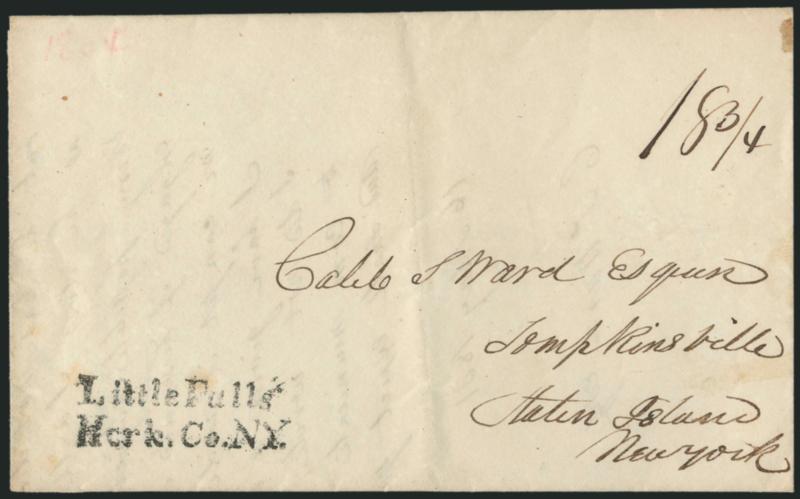 18 3/4
Caleb S Ward Esquire
Tompkinsville
Staten Island
New York
Little Falls
Herk. Co. N.Y.